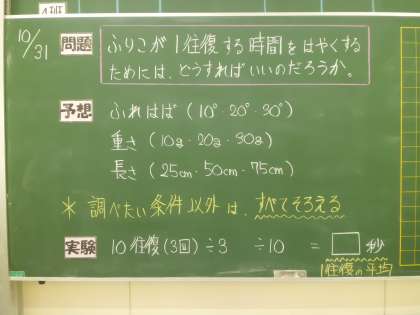 10/31
問題 ふりこが1往復する時間をはやくする
ためには、どうすればいいのだろうか。
予想 ふれはば(10°・20°・30°)
重さ(10g・20g・30g)
長さ(25cm・50cm・75cm)
* 調べたい条件以外は、すべてそろえる
実験 10往復(3回)÷3 ÷10 = □秒
1往復の平均